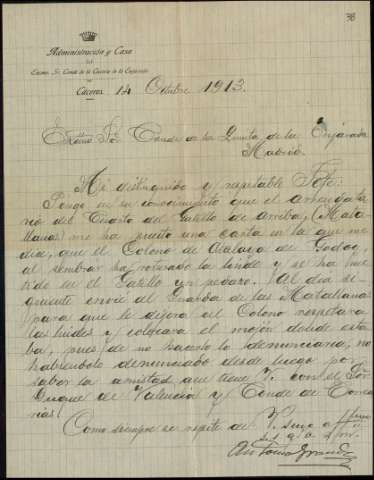 38
Administración y Casa
del
Excmo. Sr. Conde de la Quinta de la Enjarada
Cáceres 14 Octubre 1913.
Excmo Sor. Conde de la Quinta de la Enjarada
Madrid.
Mi distinguido y respetable Jefe:
Pongo en su conocimiento que el arrendata
rio del Cuarto del Gatillo de arriba, (Mata
llanas) me ha puesto una carta en la que me
dice, que el Colono de Atalaya de Godoy,
al sembrar ha roturado la linde y se ha me
tido en el Gatillo un pedazo. Al dia si-
guiente envié al Guarda de las Matallanas
para que le dijera al Colono respetara
las lindes y colocara el mojón donde esta
ba, pues de no hacerlo lo denunciaria; no
habiendolo denunciado desde luego por
saber la amistad que tiene V. con el Sor.
Duque de Valencia y Conde de Canca
rias
Como siempre se repite de V. suyo affmo
s.s. q. a
Antonio